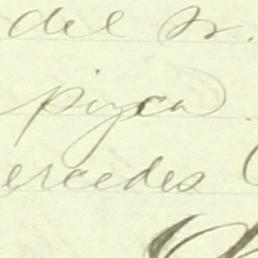 del Sr.
pizca
ercedes